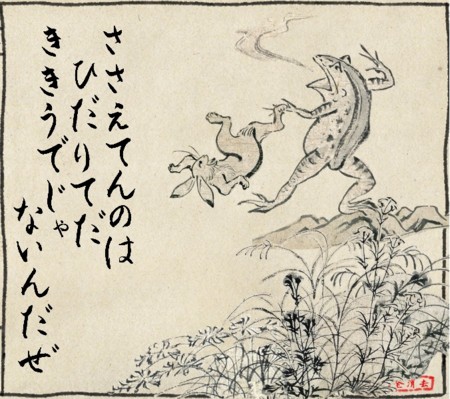 ささえてんのは
ひだりてだ
ききうでじゃ
ないんだぜ